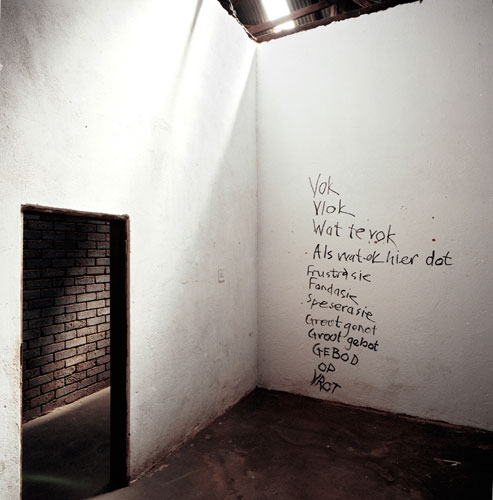 Vok
Vlok
Wat te vok
Als wat ok hier dat
Frustrasie
Fandasie
Speserasie
Groot genot
Groot gebot
GEBOD
OP
VROT